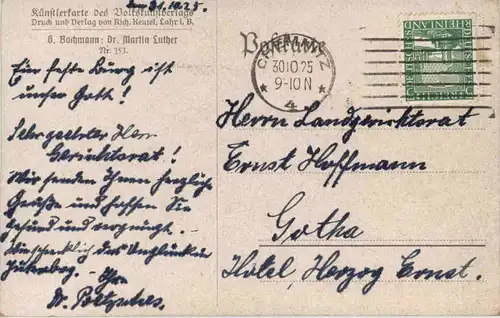 zum 31.10.25.
Künstlerkarte des Volkskunstverlags
Druck und Verlag von Rich. Keutel, Lahr i. B.
G. Bachmann: Dr. Martin Luther
Nr. 353.
Ein feste Burg ist
unser Gott!
Sehrgeehrter Herr
Gerichtsrat!
Wir senden Ihnen herzliche
Grüße und hoffen Sie
gesund und vergnügt. -
das Unglück in
Jüterbog. - Ihr
Dr.
Postkarte
CHEMNITZ
30.10.25
9-10 N
* 4 *
DEUTSCHES REICH
RHEINLAND
Herrn Landgerichtsrat
Ernst Hoffmann
Gotha
Hotel, Herzog Ernst.